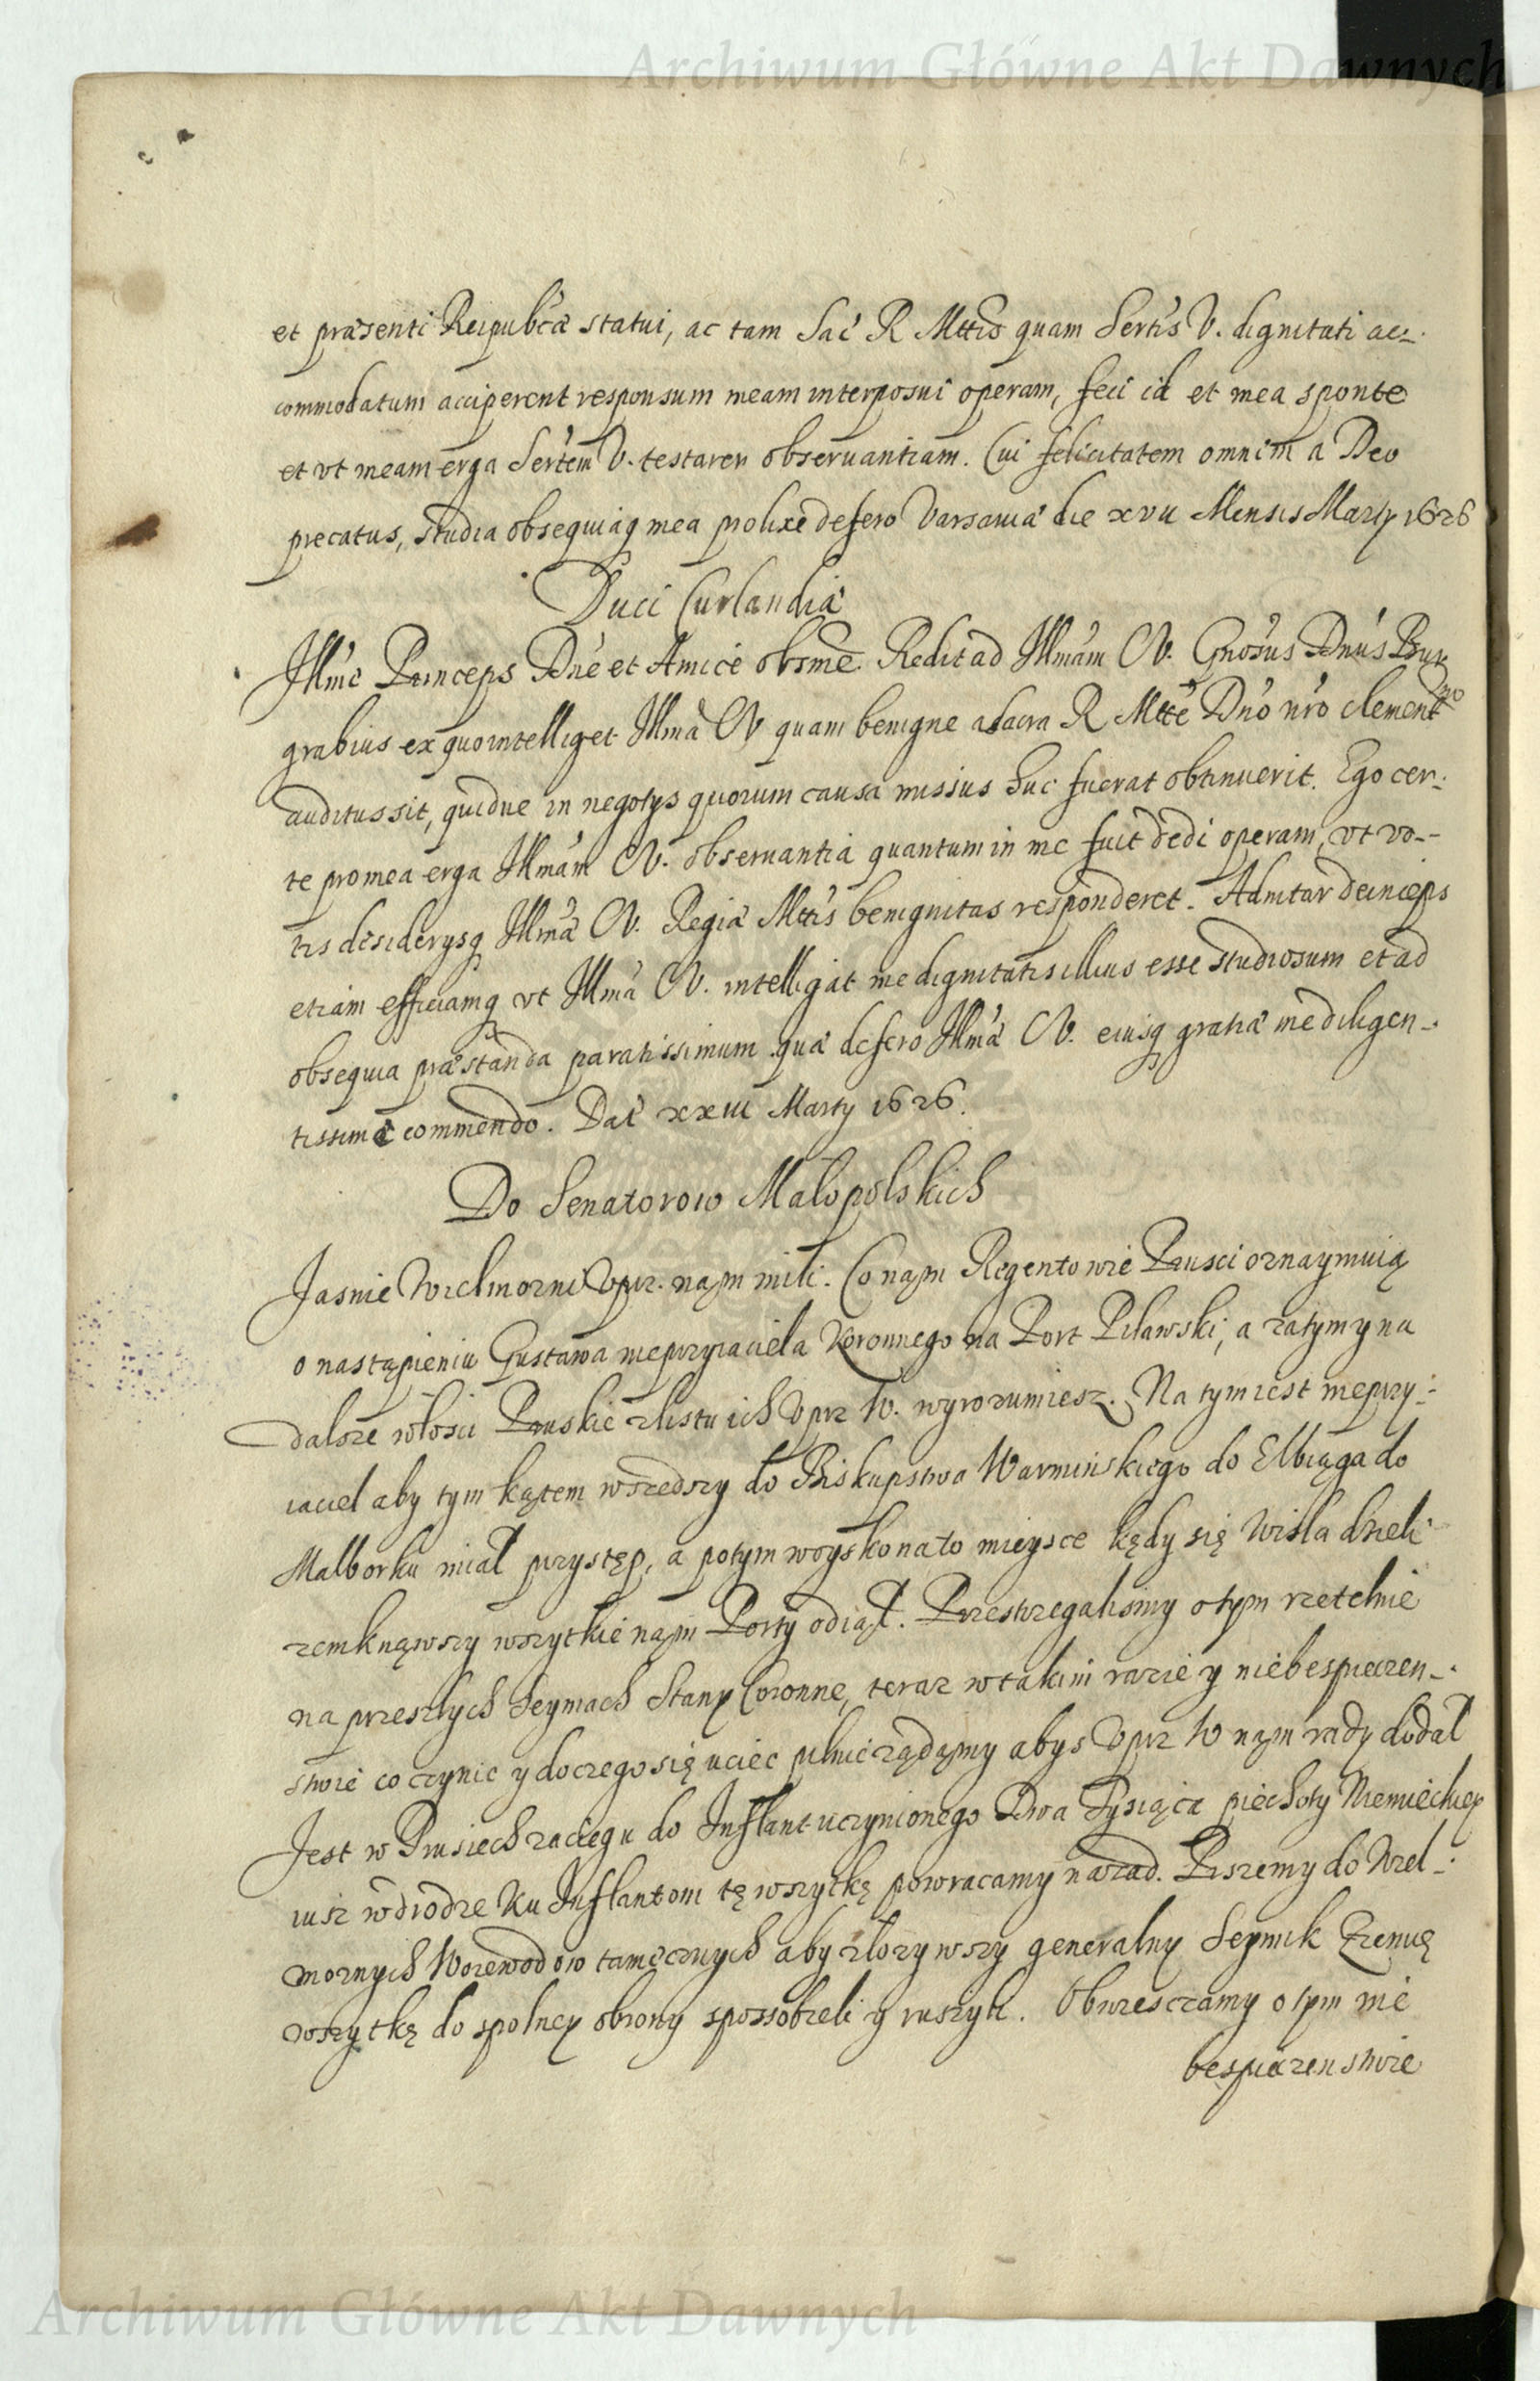 Archiwum Główne Akt Dawnych
et præsenti Reipubcæ statui, ac tam Sac R Mttis quam Sertis V. dignitati ac-
commodatum acciperent responsum meam interposui operam, feci id et mea sponte
et vt meam erga Sertem V. testarer obseruantiam. Cui felicitatem omnim a Deo
precatus, studia obsequiaq mea prolixe defero Varsauiæ die xvii Mensis Marty 1626
Duci Curlandiæ
Illme Princeps Dne et Amice obsme. Redit ad Illmam CV. Gnosus Dnus Bur
grabius ex quo intelliget Illma CV quam benigne a sacra R Mtte Dno nro clementmo
auditus sit, quidue in negotys quorum causa missus huc fuerat obtinuerit. Ego cer-
te pro mea erga Illmam CV. obseruantia quantum in me fuit dedi operam, vt vo-
tis desiderysq Illmæ CV. Regiæ Mttis benignitas responderet. Adnitar deinceps
etiam efficiamq vt Illma CV. intelligat me dignitatis illius esse studiosum et ad
obsequia præstanda paratissimum quæ defero Illmæ CV. eiusq gratiæ me diligen-
tissime commendo. Dat xxiii Marty 1626.
Do Senatorow Małopolskich
Jasnie Wielmozni Vpr. nąm mili. Co nąm Regentowie Prusci oznaymuią
o nastąpieniu Gustawa nieprzyiaciela Koronnego na Port Pilawski, a zatym y na
dalsze włosci Pruskie z listu ich Vprz W. wyrozumiesz. Na tym iest nieprzy-
iaciel aby tym kątem wszedszy do Biskupstwa Warminskiego do Elbiąga do
Malborku miał przystęp, a potym woysko na to mieysce kędy się Wisła dzieli
zemknąwszy wszytkie nąm Porty odiął. Przestrzegalismy o tym rzetelnie
na przeszłych Seymach Stany Coronne, teraz w takim razie y niebespieczen-
stwie co czynic y do czego się uciec pilnie ządąmy abys Vprz W nąm rady dodał
Jest w Prusiech zaciegu do Inflant uczynionego Dwa Tysiąca piechoty Niemieckiey
iusz w drodze Ku Inflantom tę wszytkę powracamy nazad. Piszemy do Wiel-
moznych Woiewodow tamecznych aby złozywszy generalny Seymik Ziemię
wszytkę do spolney obrony sposobieli y ruszyli. Obwiesczamy o tym nie
bespieczenstwie
Archiwum Główne Akt Dawnych